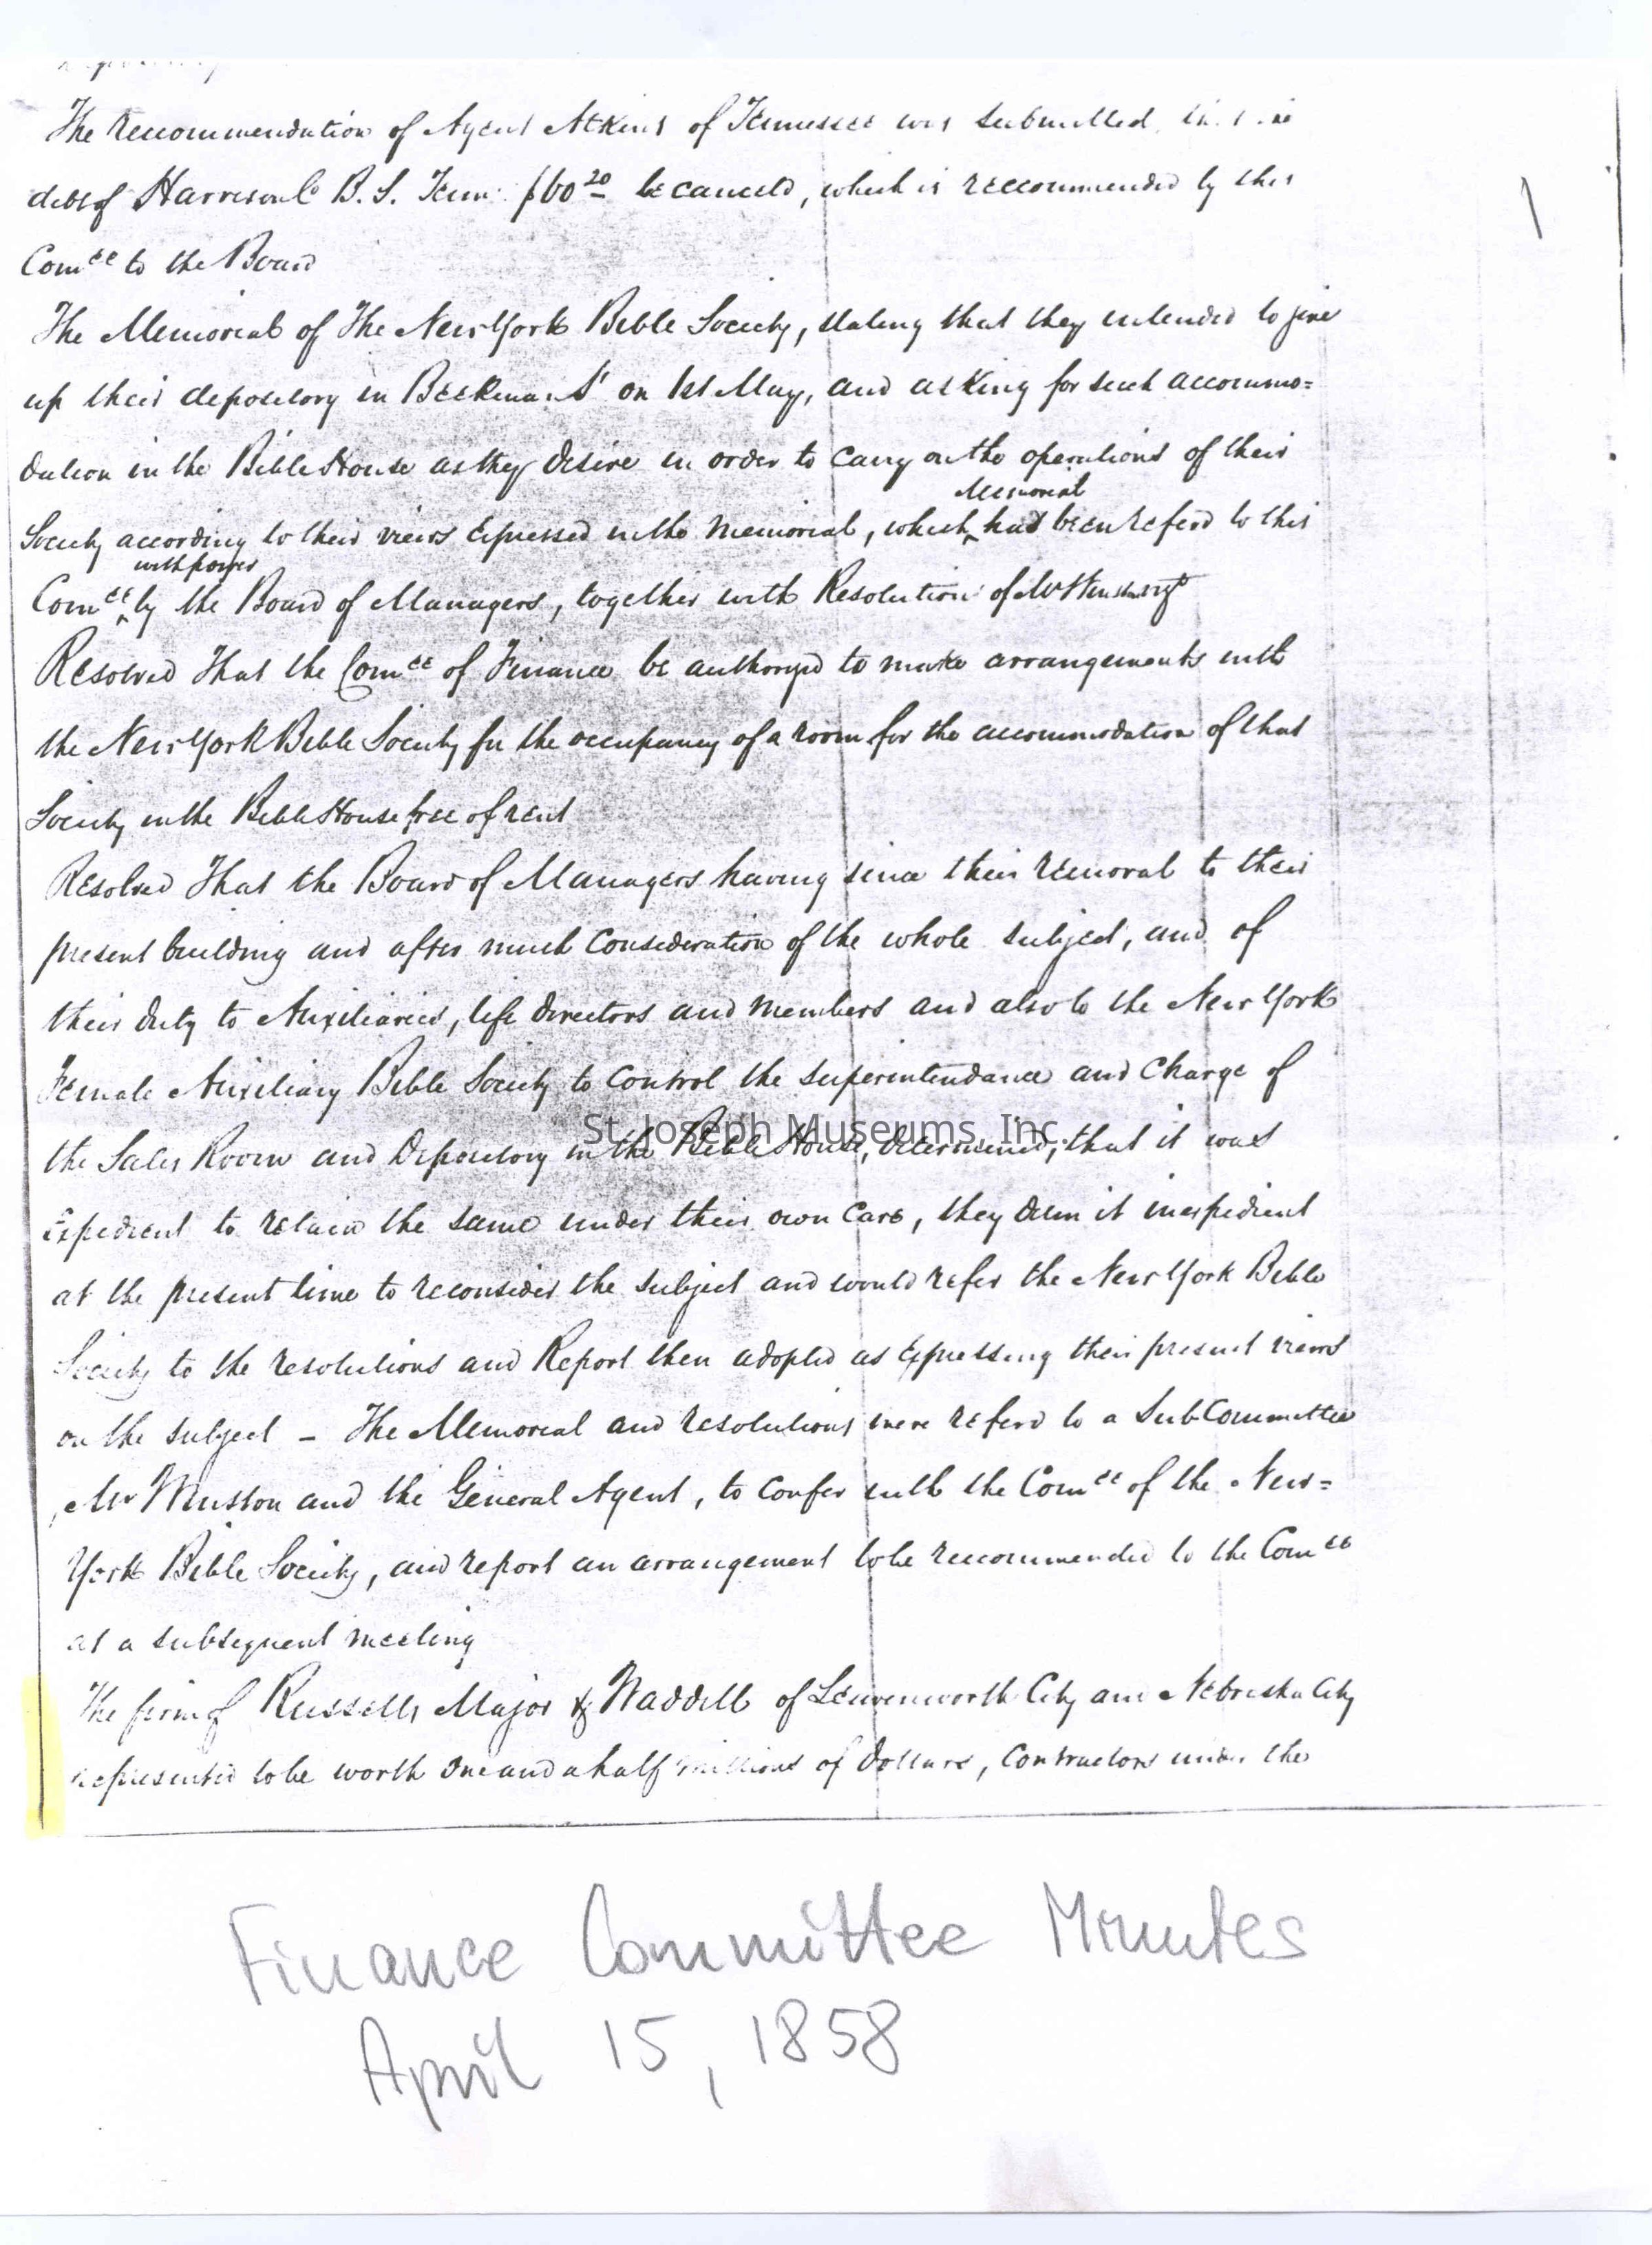 The Recommendation of Agent Atkins of Tennessee was submitted
debt of Harrison Co B. S. Tenn: $60 20 be canceld, which is reccommended by this
Comee to the Board
The Memorial of The New York Bible Society, stating that they intended to give
up their depository in Beekman St on 1st May, and asking for such accommo=
dation in the Bible House as they desire in order to carry on the operations of their
Memorial
Society according to their views Expressed in the Memorial, which ‸ had been referd to this
with power
Comee ‸ by the Board of Managers, together with Resolution of Mr
Resolved That the Comee of Finance be authorized to make arrangements with
the New York Bible Society for the occupancy of a room for the accommodation of that
Society in the Bible House free of rent
Resolved That the Board of Managers having since their removal to their
present building and after much consideration of the whole subject, and of
their duty to Auxiliaries, life directors and members and also to the New York
Female Auxiliary Bible Society to control the superintendance and charge of
St. Joseph Museums, Inc.
the Sales Room and Depository in the Bible House, determined, that it was
Expedient to retain the same under their own care, they deem it inexpedient
at the present time to reconsider the subject and would refer the New York Bible
Society to the resolutions and Report then adopted as Expressing their present views
on the subject – The Memorial and resolutions were referd to a Sub Committee
Mr Winston and the General Agent, to confer with the Comee of the New=
York Bible Society, and report an arrangement to be reccommended to the Comee
at a subsequent meeting
The firm of Russells Major & Waddell of Leavenworth City and Nebraska City
represented to be worth One and a half millions of dollars, Contractors under the
Finance Committee Minutes
April 15, 1858